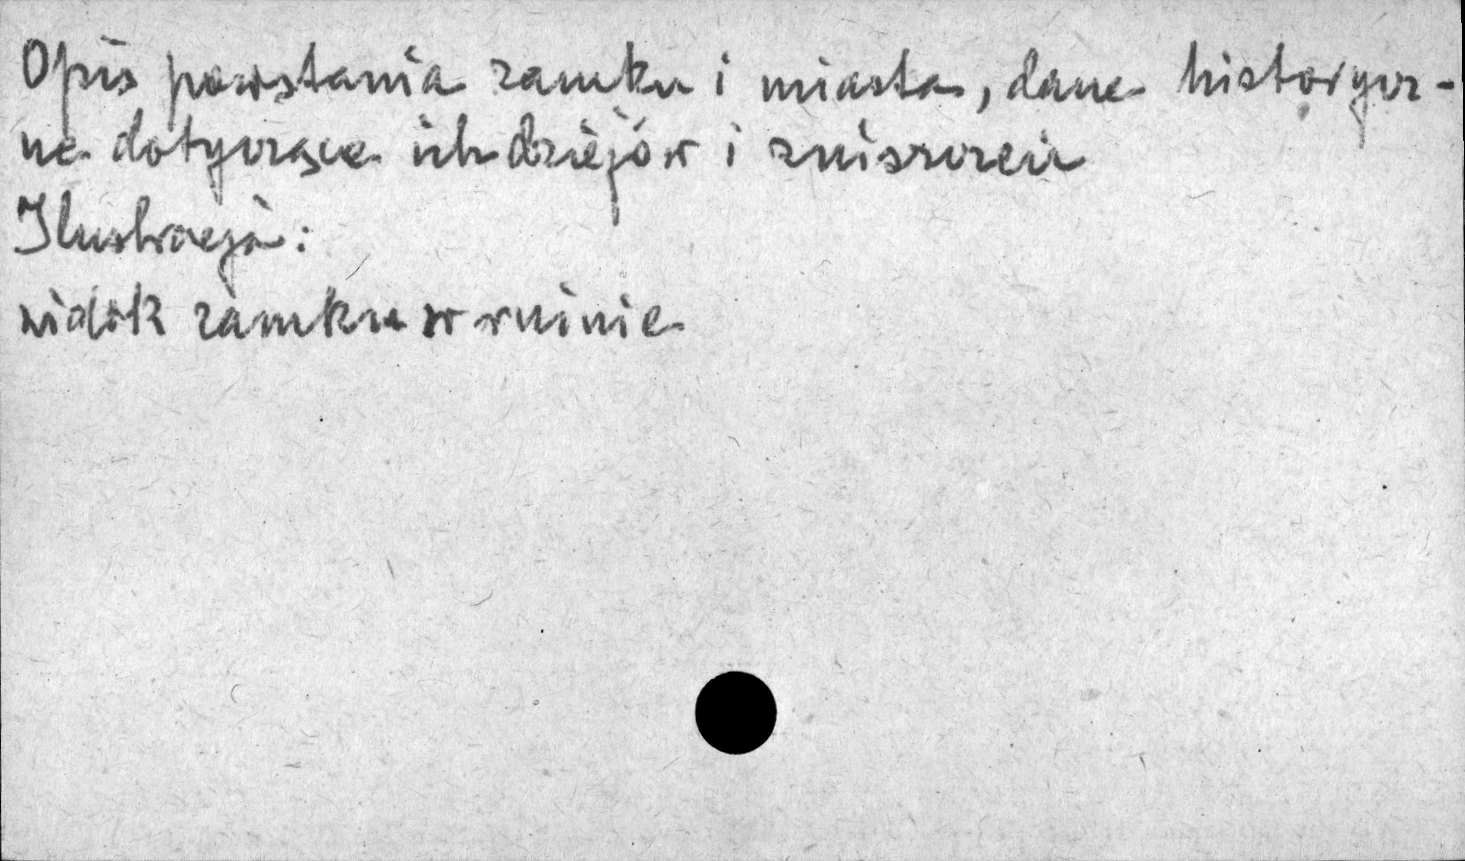 Opis powstania zamku i miasta, dane historycz-
ne dotyczące ich dziejów i zniszczeń
Ilustracja:
widok zamku w ruinie